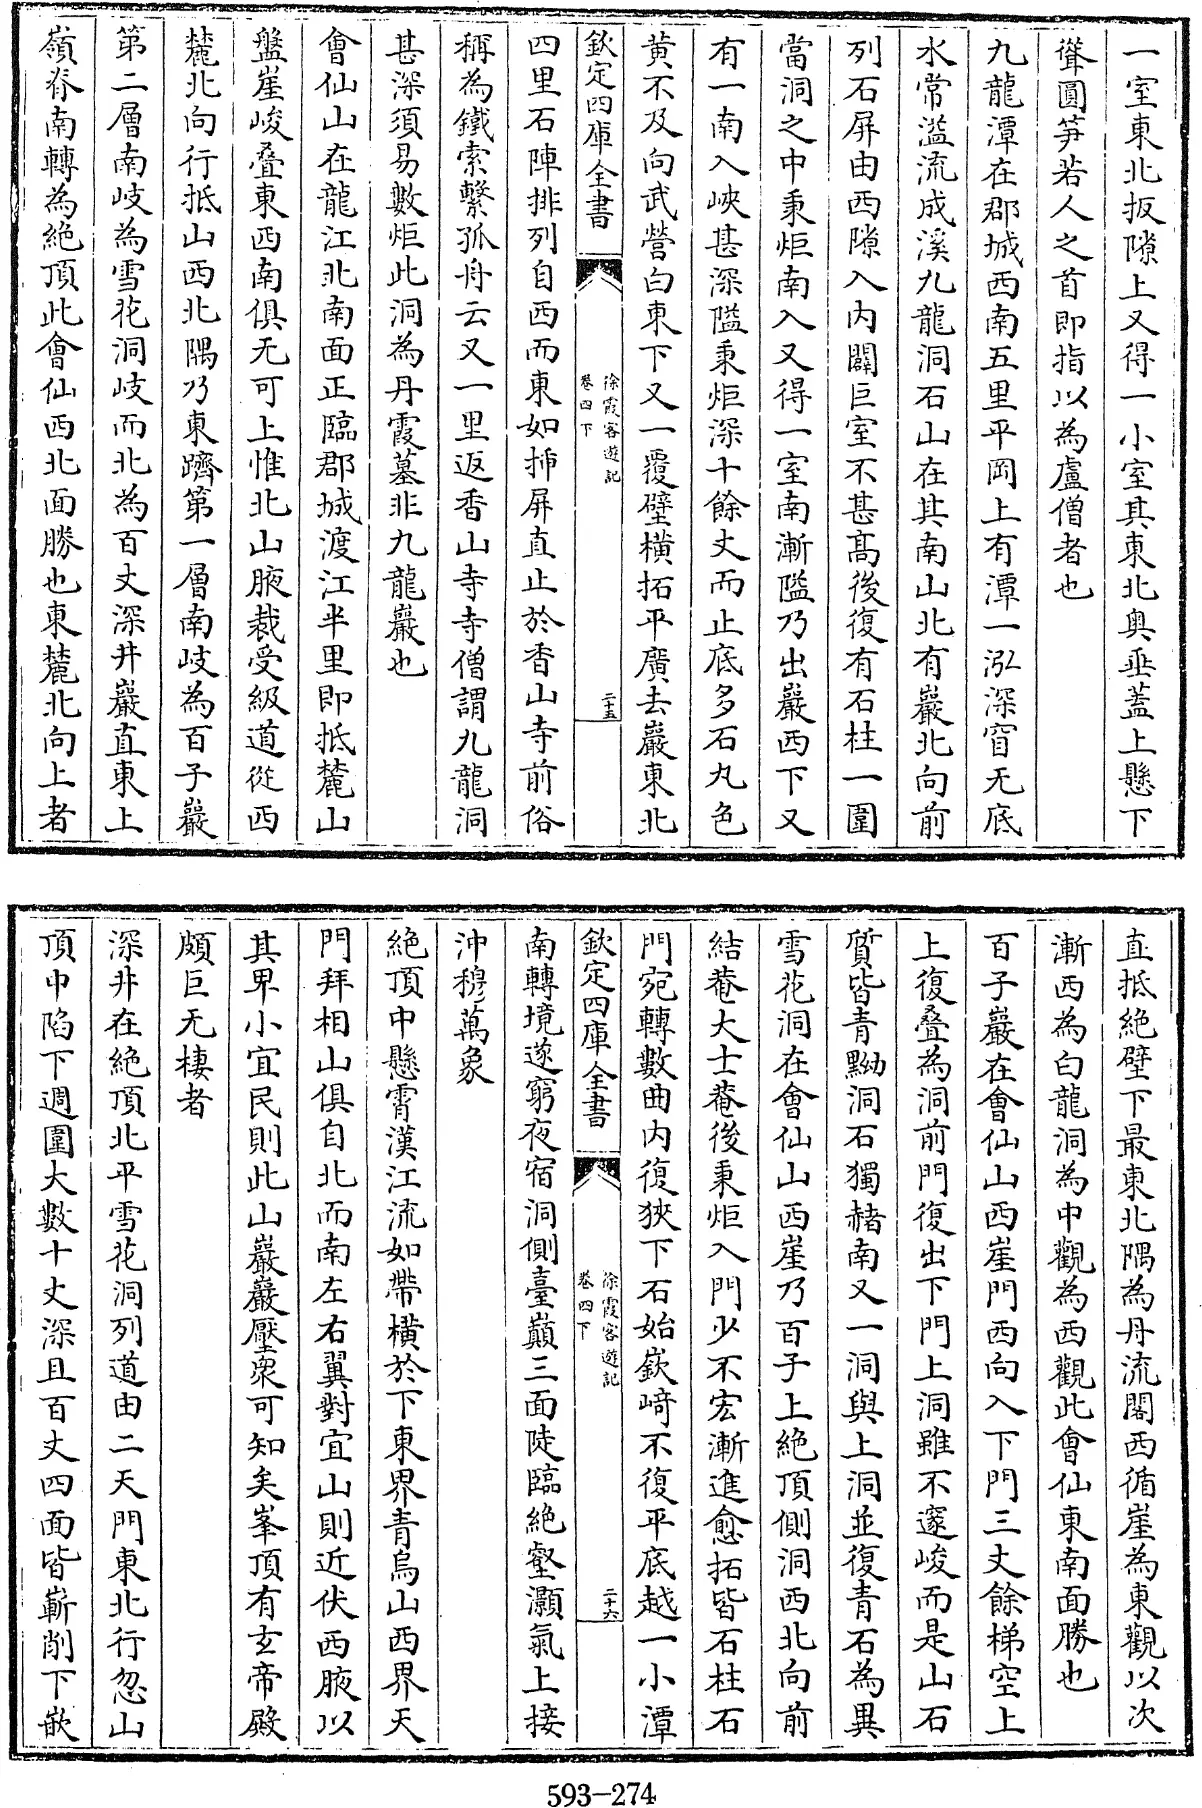 一室東北扳隙上又得一小室其東北奥垂蓋上懸下
聳圓笋若人之首即指以為盧僧者也
九龍潭在郡城西南五里平岡上有潭一泓深窅无底
水常溢流成溪九龍洞石山在其南山北有巖北向前
列石屏由西隙入内闢巨室不甚髙後復有石柱一圍
當洞之中秉炬南入又得一室南漸隘乃出巖西下又
有一南入峽甚深隘秉炬深十餘丈而止底多石丸色
黄不及向武營白東下又一覆壁横拓平廣去巖東北
欽定四庫全書
徐霞客遊記
卷四下
二十五
四里石陣排列自西而東如揷屏直止於香山寺前俗
稱為鐵索繫孤舟云又一里返香山寺寺僧謂九龍洞
甚深須易數炬此洞為丹霞墓非九龍巖也
會仙山在龍江北南面正臨郡城渡江半里即抵麓山
盤崖峻疊東西南俱无可上惟北山腋裁受級道從西
麓北向行抵山西北隅乃東躋第一層南岐為百子巖
第二層南岐為雪花洞岐而北為百丈深井巖直東上
嶺脊南轉為絶頂此會仙西北面勝也東麓北向上者
直抵絶壁下最東北隅為丹流閣西循崖為東觀以次
漸西為白龍洞為中觀為西觀此會仙東南面勝也
百子巖在會仙山西崖門西向入下門三丈餘梯空上
上復疊為洞前門復出下門上洞雖不邃峻而是山石
質皆青黝洞石獨赭南又一洞與上洞並復青石為異
雪花洞在會仙山西崖乃百子上絶頂側洞西北向前
結菴大士菴後秉炬入門少不宏漸進愈拓皆石柱石
門宛轉數曲内復狹下石始嶔崎不復平底越一小潭
欽定四庫全書
徐霞客遊記
卷四下
二十六
南轉境遂窮夜宿洞側臺巔三面陡臨絶壑灝氣上接
沖穆萬象
絶頂中懸霄漢江流如帶横於下東界青鳥山西界天
門拜相山俱自北而南左右翼對宜山則近伏西腋以
其卑小宜民則此山巖巖壓衆可知矣峯頂有玄帝殿
頗巨无棲者
深井在絶頂北平雪花洞列道由二天門東北行忽山
頂中陷下週圍大數十丈深且百丈四面皆嶄削下嵌
593-274